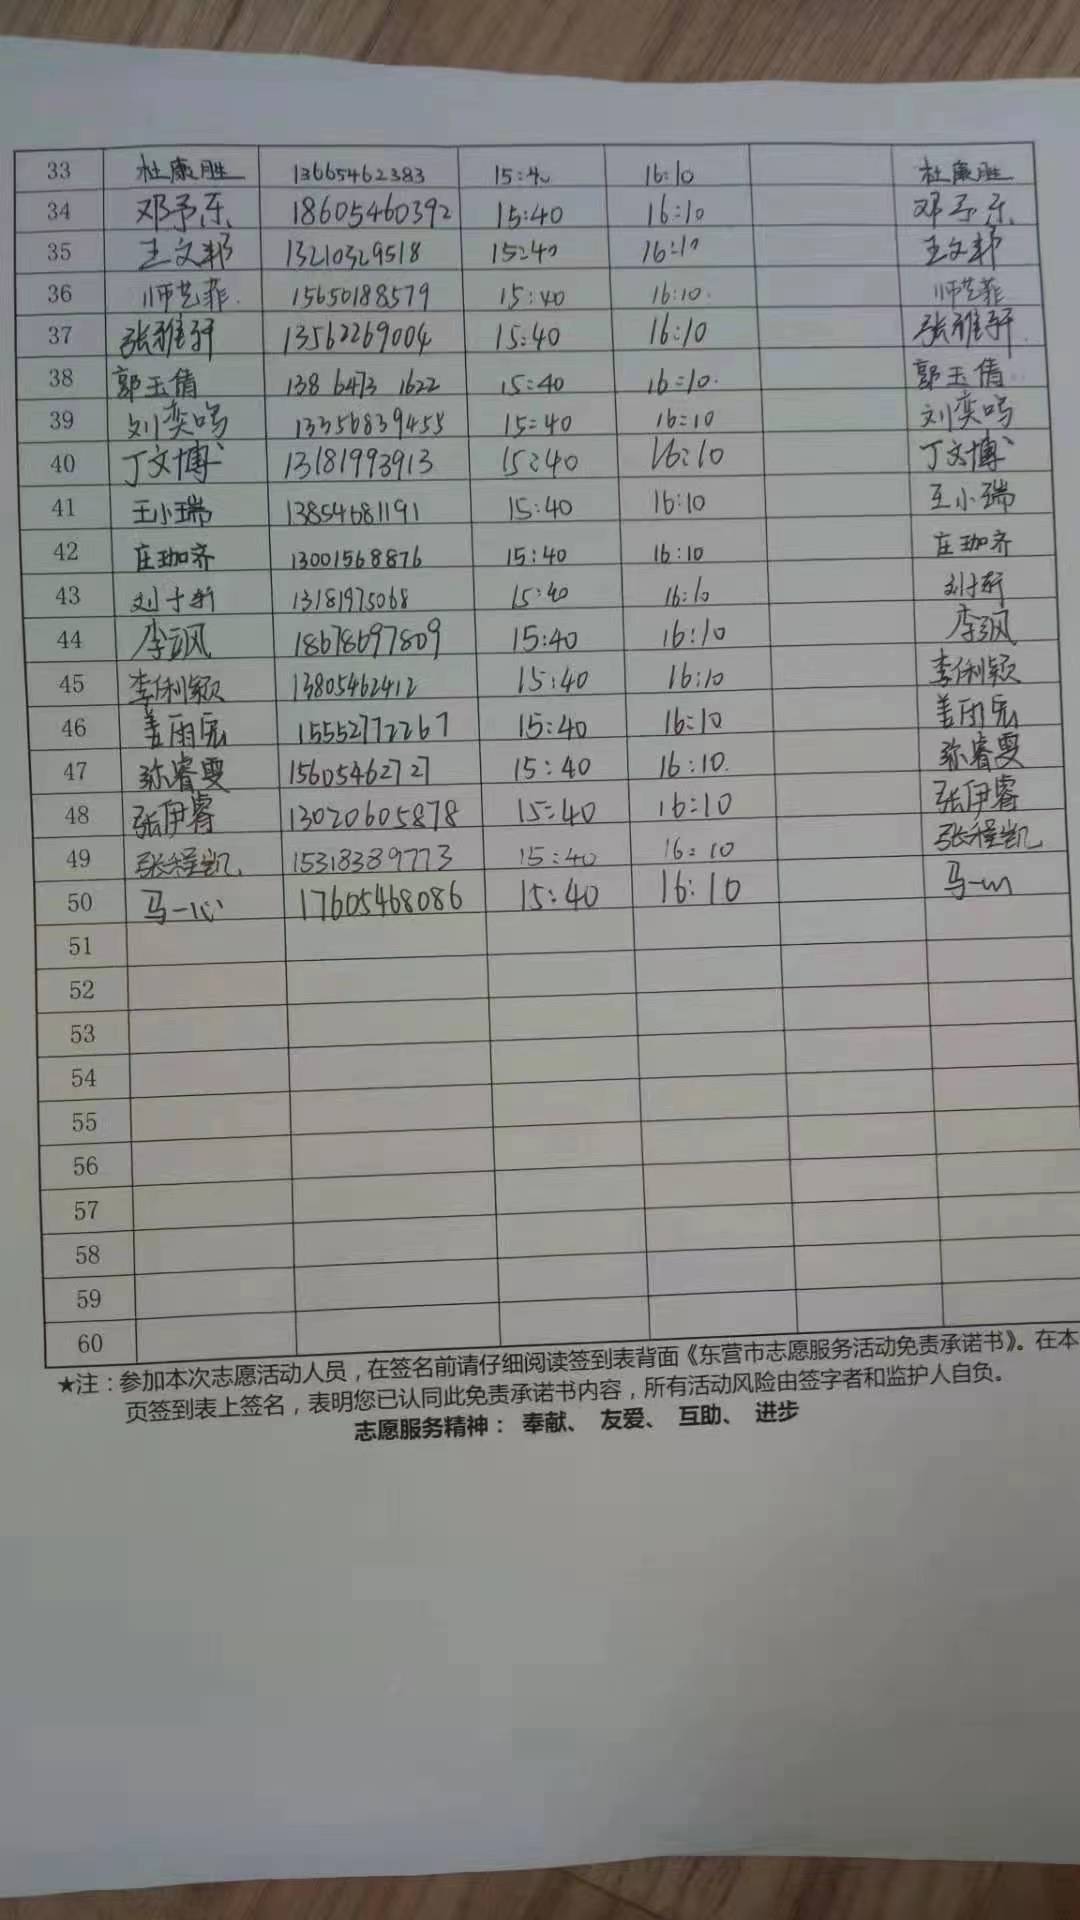 33 杜康胜 13665462383 15:40 16:10 杜康胜
34 邓予东 18605460392 15:40 16:10 邓予东
35 王文邦 13210329518 15:40 16:10 王文邦
36 师艺菲 15650188579 15:40 16:10 师艺菲
37 张雅轩 13562269004 15:40 16:10 张雅轩
38 郭玉倩 138 6473 1622 15:40 16:10 郭玉倩
39 刘奕鸣 13356839455 15:40 16:10 刘奕鸣
40 丁文博 13181993913 15:40 16:10 丁文博
41 王小瑞 13854681191 15:40 16:10 王小瑞
42 庄珈齐 13001568876 15:40 16:10 庄珈齐
43 13181975068 15:40 16:10
44 18678697809 15:40 16:10
45 李俐颖 13805462412 15:40 16:10 李俐颖
46 姜雨宏 15552772267 15:40 16:10 姜雨宏
47 15605462727 15:40 16:10
48 张伊睿 13020605878 15:40 16:10 张伊睿
49 张程凯 15318389773 15:40 16:10 张程凯
50 马一心 17605468086 15:40 16:10 马一心
51
52
53
54
55
56
57
58
59
60
★注：参加本次志愿活动人员，在签名前请仔细阅读签到表背面《东营市志愿服务活动免责承诺书》。在本
页签到表上签名，表明您已认同此免责承诺书内容，所有活动风险由签字者和监护人自负。
志愿服务精神： 奉献、 友爱、 互助、 进步